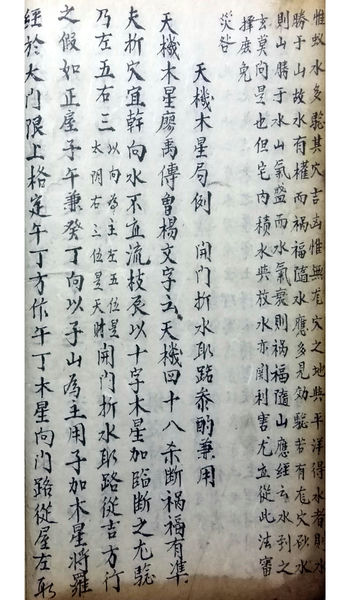 惟蚁水多验其穴吉凶惟無龙穴之地與平洋得水者則水
勝于山故水有權而祸福隨水應多見効驗若有龙穴砂水
則山勝于水山氣盛而水氣衰則祸福隨山應經云水到之
玄莫问是也但宅内積水與放水亦関利害尤立從此法審
擇庶免
災咎
天機木星局例 開門折水取路泰酌兼用
天機木星廖禹傳曾楊文字立天機四十八杀断祸福有凖
夫折穴宜幹向水不宜流枝辰以十字木星加臨断之尤驗
乃左五右三以向為主左五位是太阴右三位是天財開門折水取路從吉方行
之假如正屋子午兼癸丁向以子山為主用子加木星將羅
經於大门限上格定午丁方作午丁木星向门路從屋左取